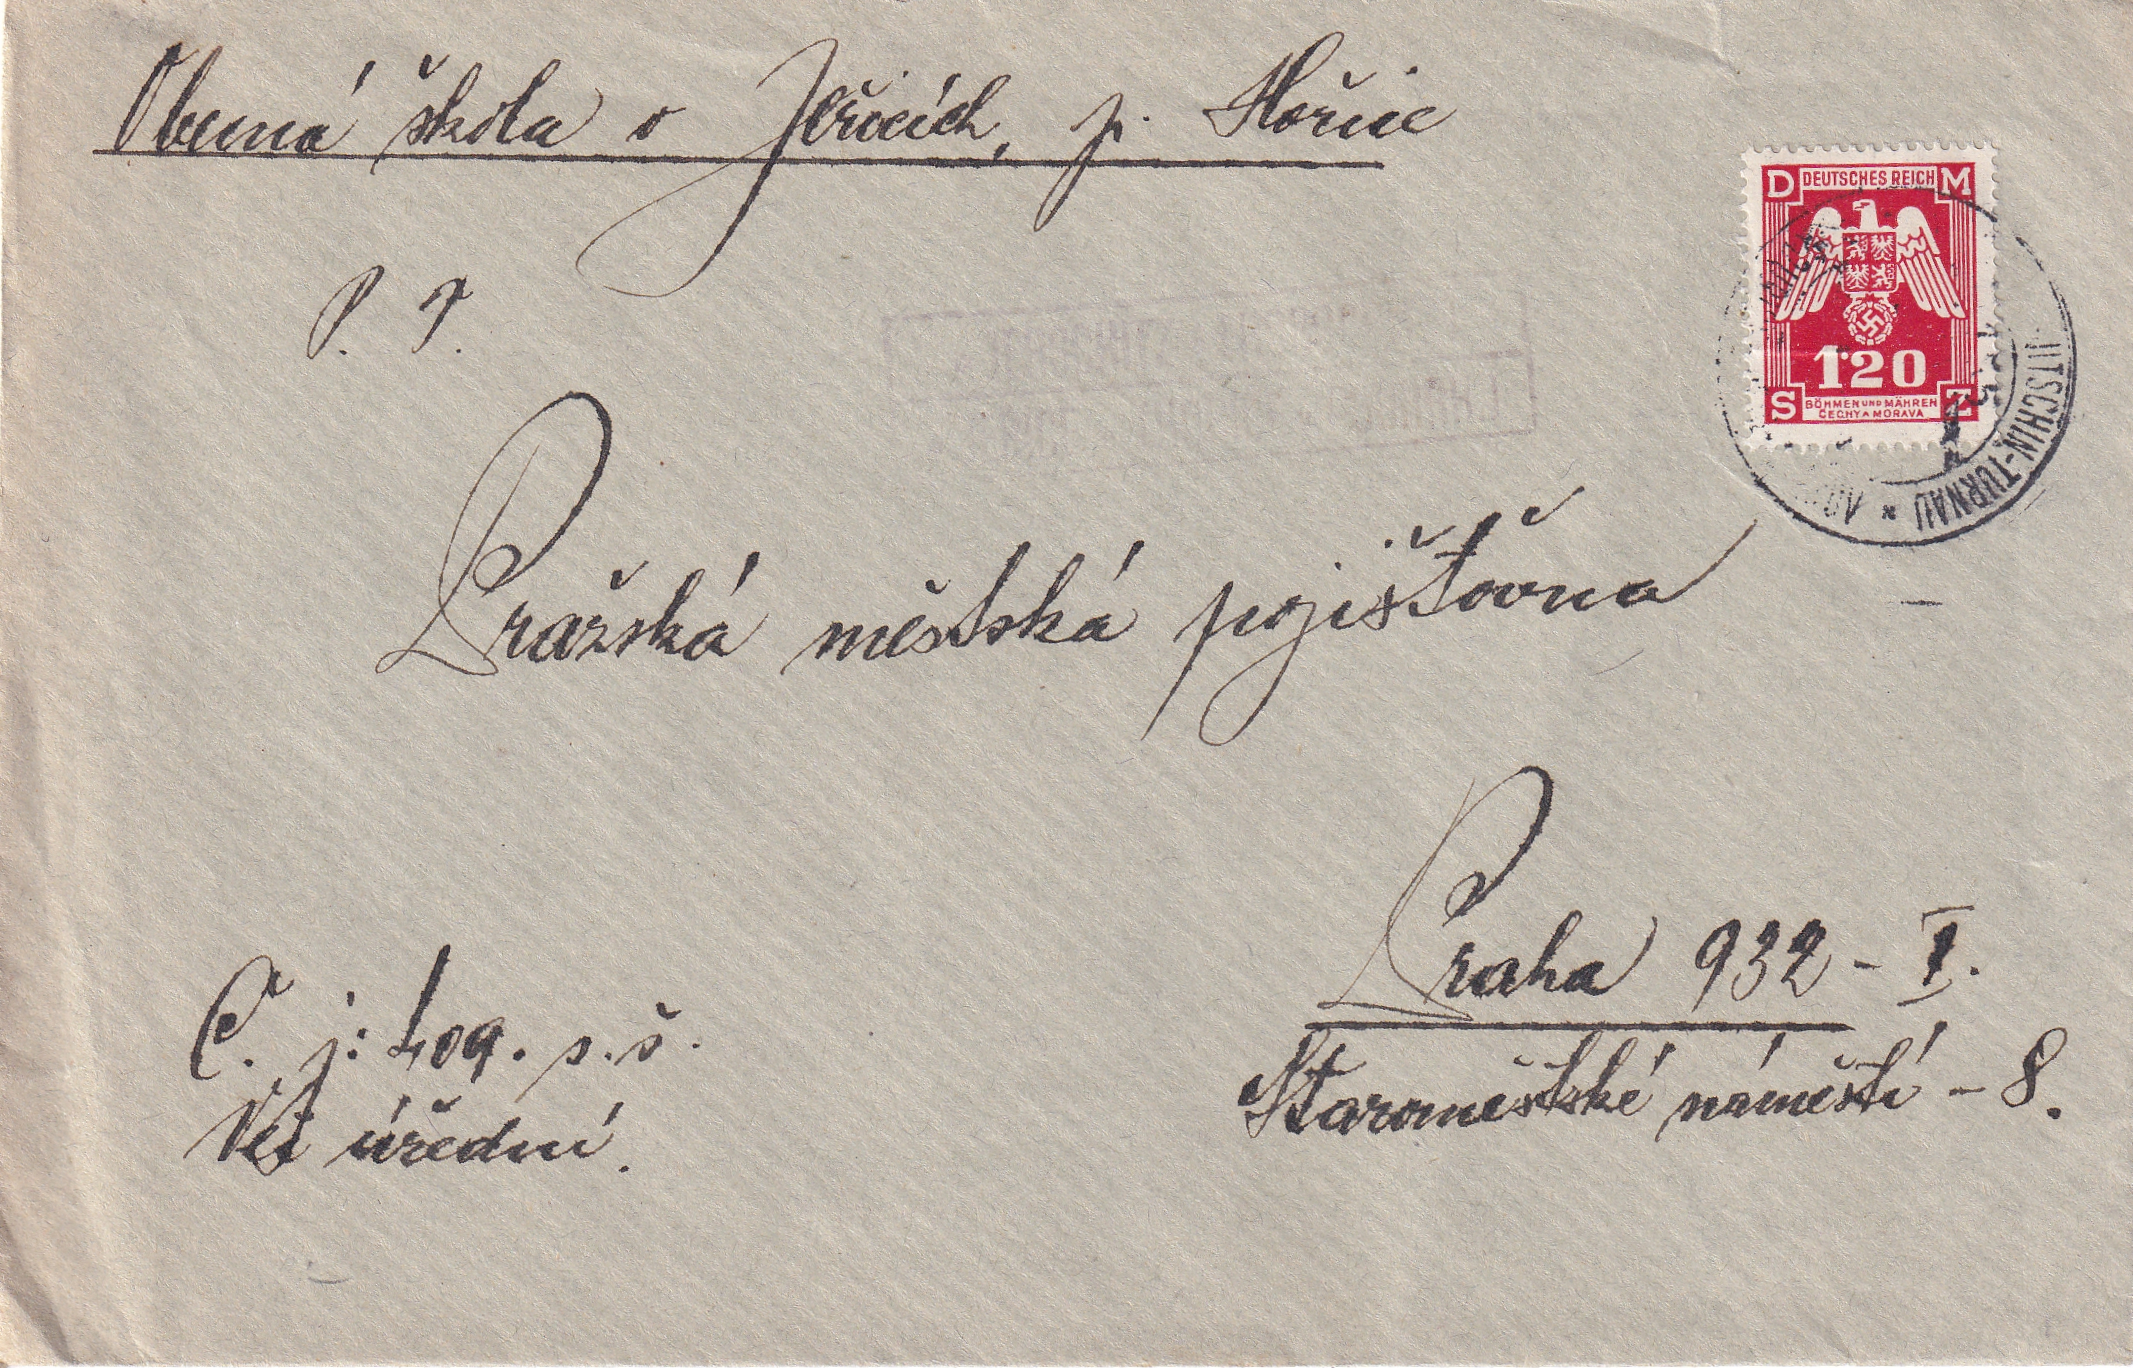 Obecná škola v Jeřicích, p. Hořice
P. T.
D DEUTSCHES REICH M
1·20
S BÖHMEN UND MÄHREN Z
ČECHY A MORAVA
JITSCHIN-TURNAU
Pražská městská pojišťovna
Praha 932 - I.
Staroměstské náměstí - 8.
Č. j: 409. s. š.
Věc úřední.